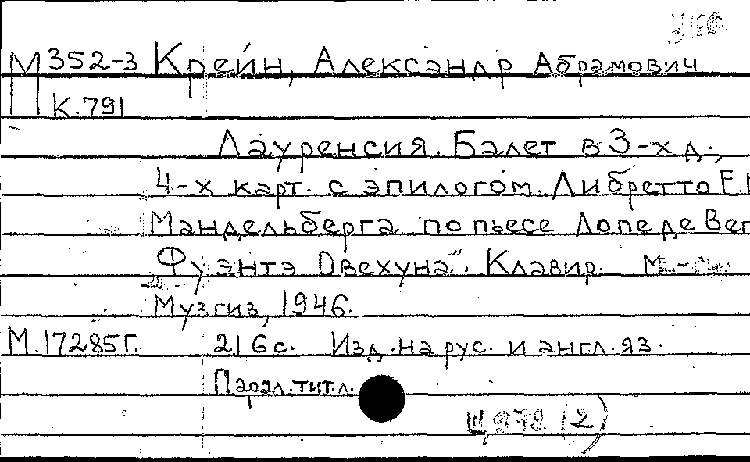 М352-3 Крейн, Александр Абрамович
К.791
Лауренсия. Балет в 3-х д.,
4-х карт. с эпилогом. Либретто Е.
Мандельберга по пьесе Лопе де Вег
Фуэнтэ Овехуна". Клавир. М.-
Музгиз, 1946.
М.17285г. 216с. Изд. на рус. и англ. яз.
Парал. тит. л.
(2)